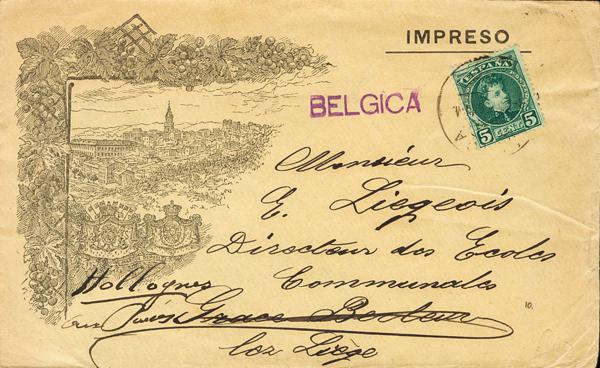 IMPRESO
ESPAÑA
5 CENT. 5
BELGICA
Monsieur
E. Liegeois
Directeur des Ecoles
Communales
Hollogne
aux Pierres Grace Berleur
loz Liège
10.